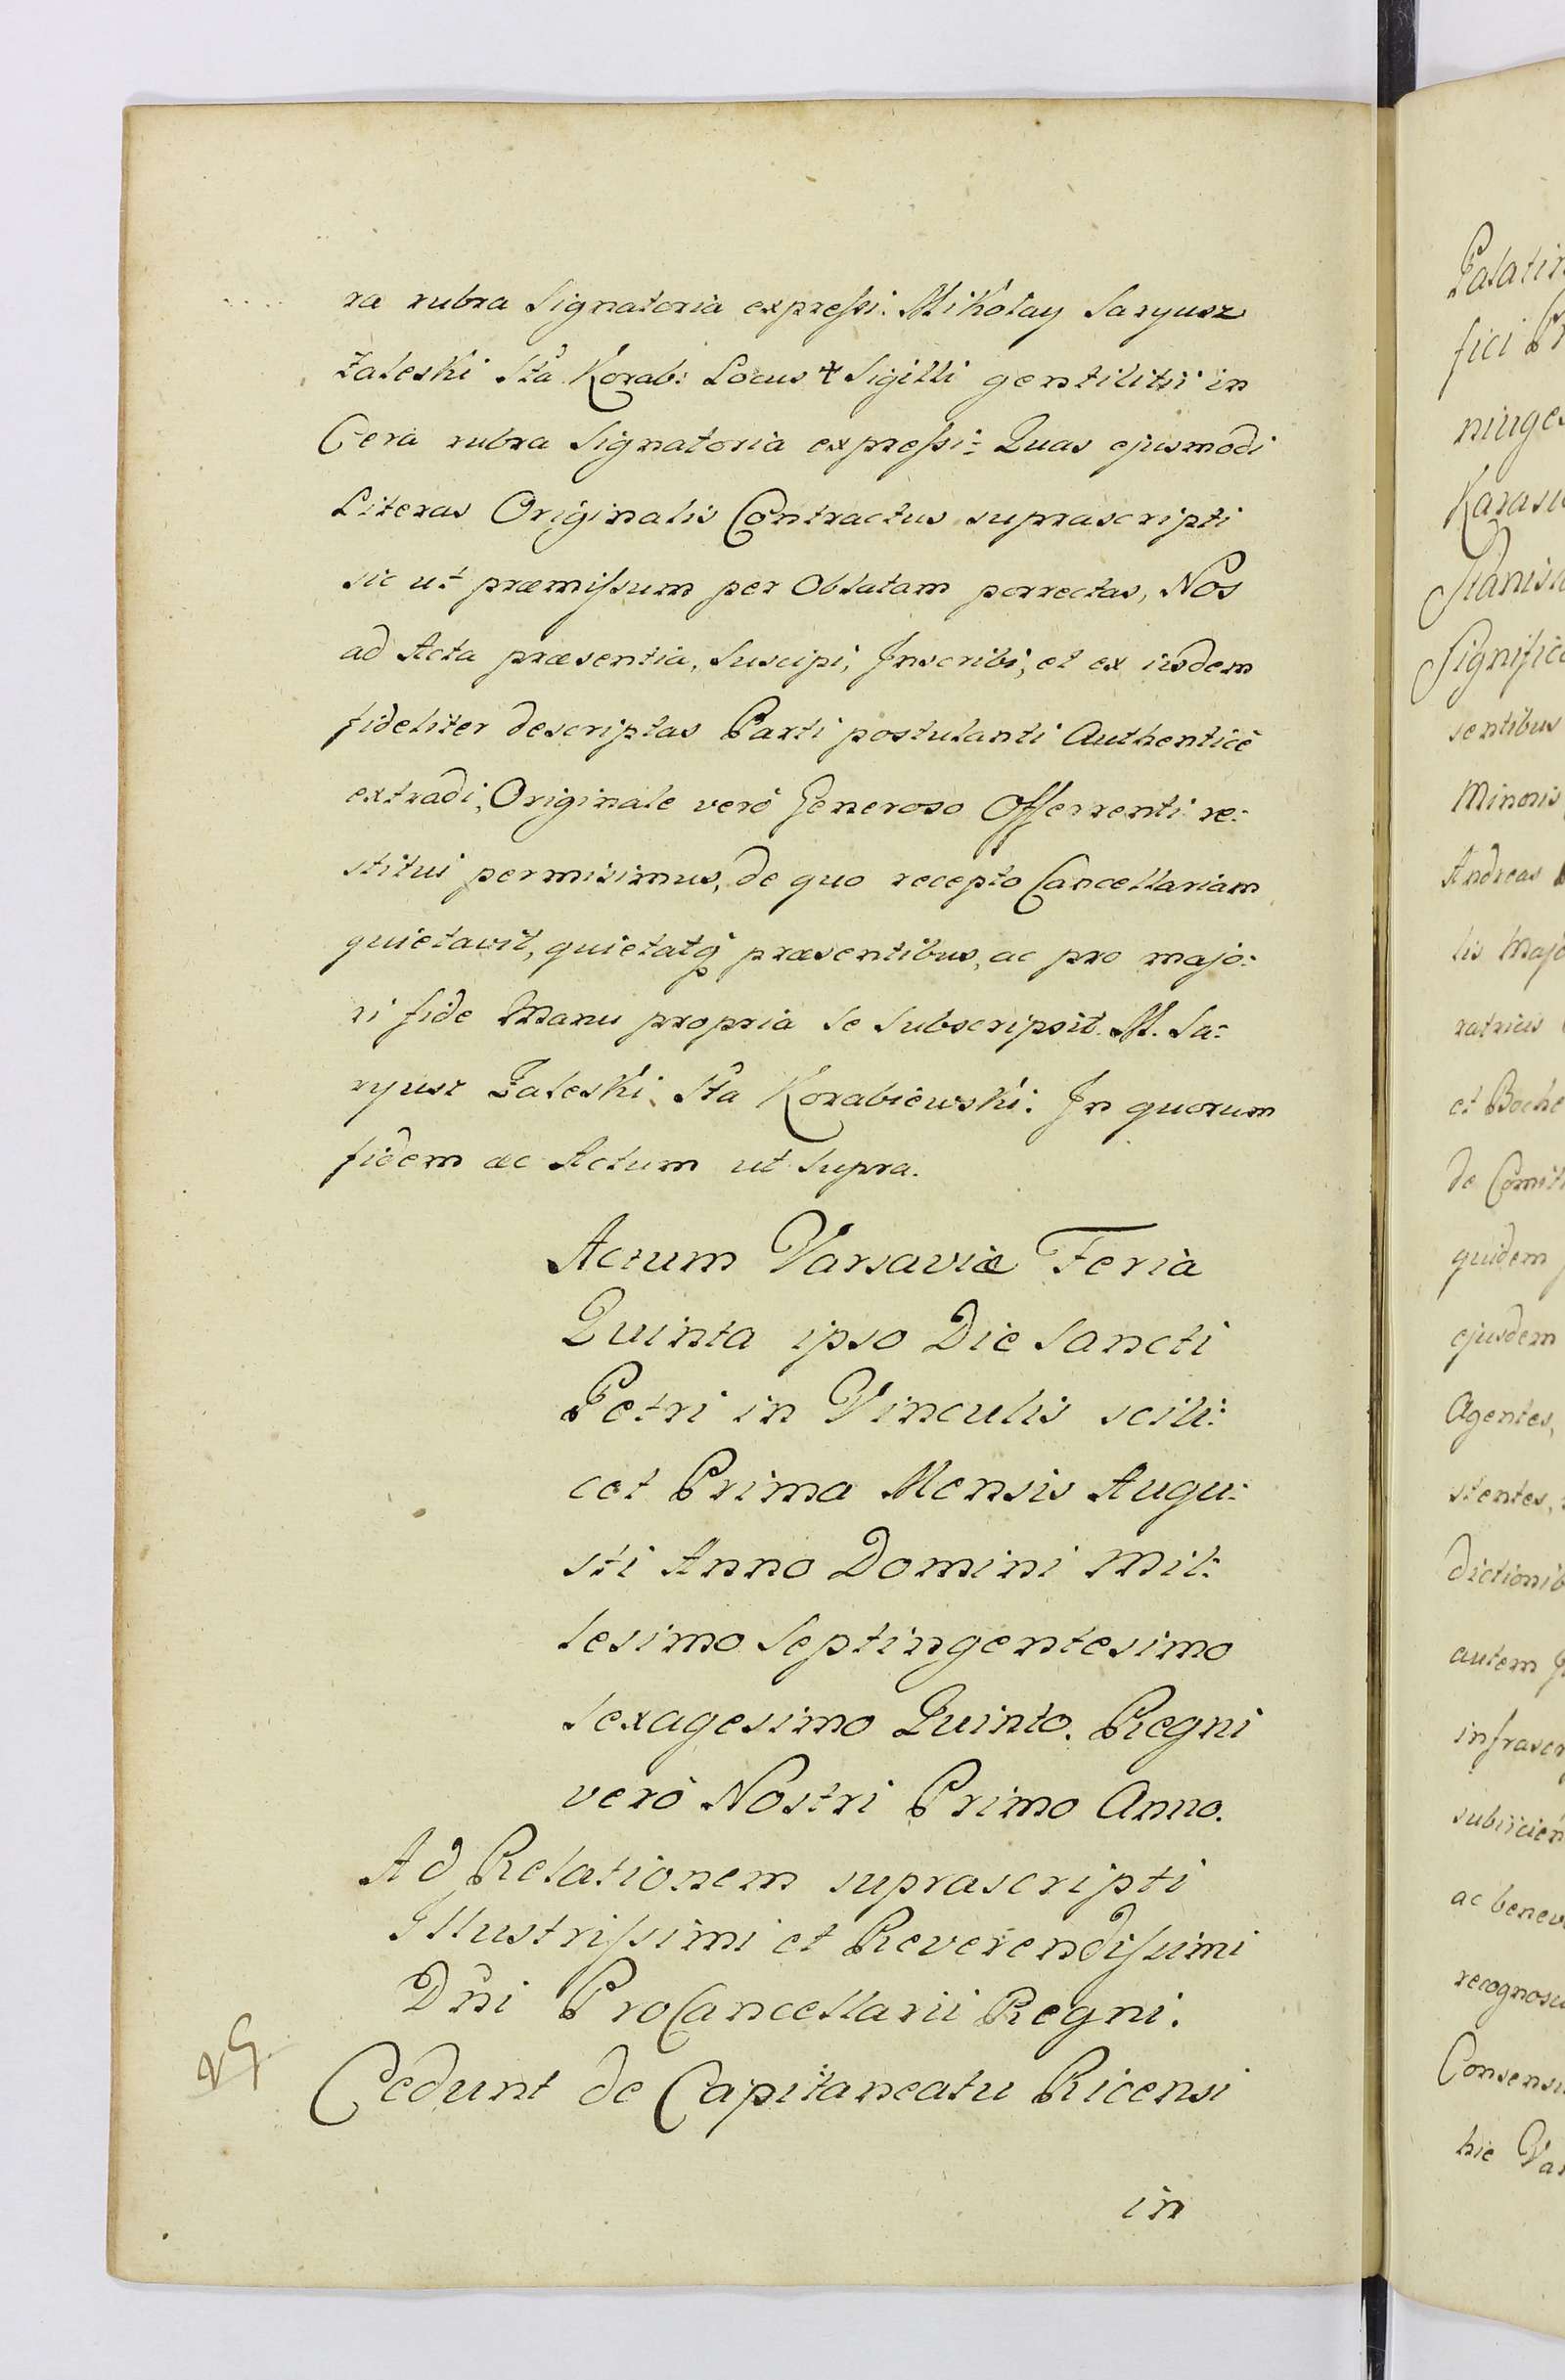 ra rubra Signatoria expreſsi. Mikołay Saryusz
Zaleski Sta Korab: Locus ✝ Sigilli gentilitii in
Cera rubra Signatoria expreſsi: Quas ejusmodi
Literas Originalis Contractus suprascripti
sic ut præmiſsum per Oblatam porrectas, Nos
ad Acta præsentia, Suscipi, Inscribi, et ex iisdem
fideliter descriptas Parti postulanti Authenticè
extradi, Originale verò Generoso Offerrenti re:
stitui permisimus, de quo recepto Cancellariam
quietavit, quietatq præsentibus, ac pro majo:
ri fide Manu propria se Subscripsit. M. Sa:
ryusz Zaleski Sta Korabiewski. In quorum
fidem ac Actum ut Supra.
Actum Varsaviæ Feria
Quinta ipso Die Sancti
Petri in Vinculis scili:
cet Prima Mensis Augu:
sti Anno Domini Mil:
lesimo Septingentesimo
Sexagesimo Quinto. Regni
verò Nostri Primo Anno.
Ad Relationem suprascripti
Illustriſsimi et Reverendiſsimi
Dni ProCancellarii Regni.
Cedunt de Capitaneatu Ricensi
in
Palatin
fici
ninges
Stanisl
Signific
sentibus
Minoris
Andreas
lis Majo
ratricis
et Boche
de Comit
quidem
ejusdem
Agentes,
stentes,
dictionib
autem
infrascr
subiicien
ac benev
recognosc
Consensu
hic Var